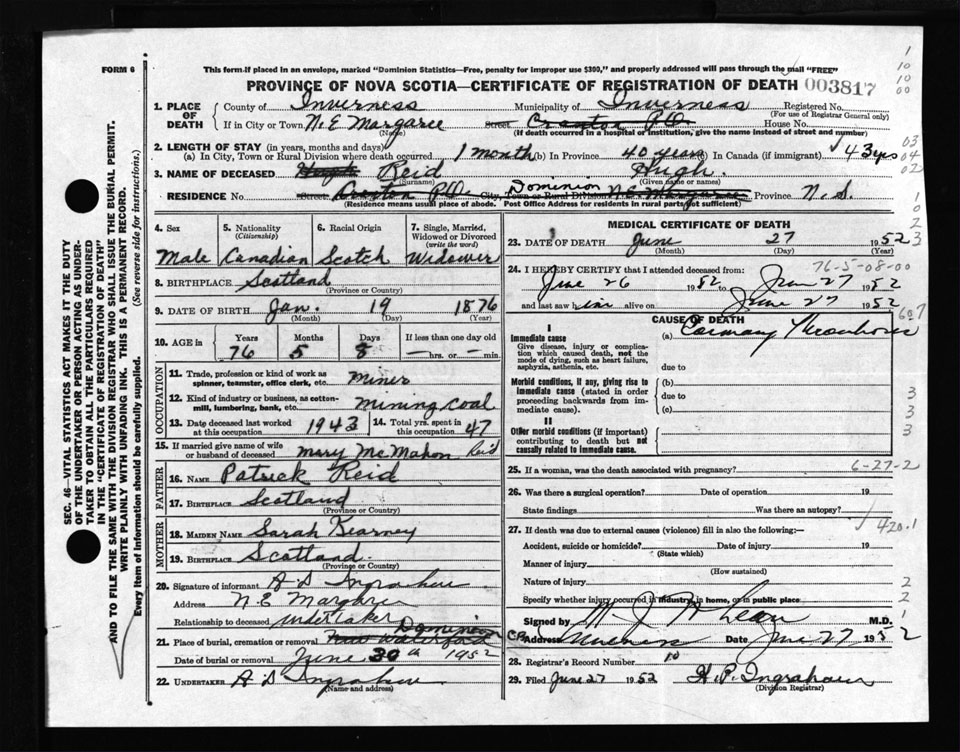 FORM 6
This form if placed in an envelope, marked "Dominion Statistics—Free, penalty for improper use $300," and properly addressed will pass through the mail "FREE"
PROVINCE OF NOVA SCOTIA—CERTIFICATE OF REGISTRATION OF DEATH 003817
1. PLACE OF DEATH County of Inverness Municipality of Inverness Registered No.
(For use of Registrar General only)
If in City or Town N.E Margaree Street P.O. House No.
(Name) (If death occurred in a hospital or institution, give the name instead of street and number)
2. LENGTH OF STAY (in years, months and days)
(a) In City, Town or Rural Division where death occurred 1 month (b) In Province 40 years (c) In Canada (if immigrant) 43 yrs
3. NAME OF DECEASED Reid Hugh
(Surname) (Given name or names)
RESIDENCE No. Street P.O. City, Town or Rural Division Dominion N.E. Margaree Province N.S.
(Residence means usual place of abode. Post Office Address for residents in rural parts not sufficient)
4. Sex Male
5. Nationality (Citizenship) Canadian
6. Racial Origin Scotch
7. Single, Married, Widowed or Divorced (write the word) Widower
8. BIRTHPLACE Scotland
(Province or Country)
9. DATE OF BIRTH Jan. 19 1876
(Month) (Day) (Year)
10. AGE in Years Months Days If less than one day old
76 5 8 — hrs. or — min.
OCCUPATION
11. Trade, profession or kind of work as spinner, teamster, office clerk, etc. Miner
12. Kind of industry or business, as cotton-mill, lumbering, bank, etc. Mining Coal
13. Date deceased last worked at this occupation 1943
14. Total yrs. spent in this occupation 47
15. If married give name of wife or husband of deceased Mary McMahon Reid
FATHER
16. NAME Patrick Reid
17. BIRTHPLACE Scotland
(Province or Country)
MOTHER
18. MAIDEN NAME Sarah Kearney
19. BIRTHPLACE Scotland.
(Province or Country)
20. Signature of informant A D Ingraham
Address N.E Margaree
Relationship to deceased Undertaker
21. Place of burial, cremation or removal New Waterford Dominion
Date of burial or removal June 30th 1952
22. UNDERTAKER A D Ingraham
(Name and address)
MEDICAL CERTIFICATE OF DEATH
23. DATE OF DEATH June 27 1952
(Month) (Day) (Year)
76-5-08-00
24. I HEREBY CERTIFY that I attended deceased from:
June 26 1952 to June 27 1952
and last saw him alive on June 27 1952
CAUSE OF DEATH
I
Immediate cause
Give disease, injury or complication which caused death, not the mode of dying, such as heart failure, asphyxia, asthenia, etc.
(a) Coronary Thrombosis
due to
Morbid conditions, if any, giving rise to immediate cause (stated in order proceeding backwards from immediate cause).
(b)
due to
(c)
II
Other morbid conditions (if important) contributing to death but not causally related to immediate cause.
25. If a woman, was the death associated with pregnancy? 6-27-2
26. Was there a surgical operation? Date of operation 19
State findings Was there an autopsy?
27. If death was due to external causes (violence) fill in also the following:— 420.1
Accident, suicide or homicide? Date of injury 19
(State which)
Manner of injury
(How sustained)
Nature of injury
Specify whether injury occurred in industry, in home, or in public place
Signed by M. J. McLean M.D.
Address Inverness Date June 27 1952
28. Registrar's Record Number 10
29. Filed June 27 1952 H. P. Ingraham
(Division Registrar)
SEC. 46—VITAL STATISTICS ACT MAKES IT THE DUTY
OF THE UNDERTAKER OR PERSON ACTING AS UNDERTAKER TO OBTAIN ALL THE PARTICULARS REQUIRED
IN THE "CERTIFICATE OF REGISTRATION OF DEATH"
AND TO FILE THE SAME WITH THE DIVISION REGISTRAR WHO SHALL ISSUE THE BURIAL PERMIT.
WRITE PLAINLY WITH UNFADING INK. THIS IS A PERMANENT RECORD.
Every item of information should be carefully supplied. (See reverse side for instructions.)